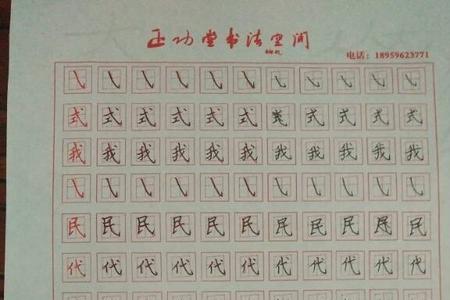 正功堂书法空间
电话：18959623771
㇂ ㇂ ㇂ ㇂ ㇂ ㇂ ㇂ ㇂ ㇂ ㇂ ㇂
式 式 式 式 式 式 式 式 式 式
我 我 我 我 我 我 我 我 我 我 我
㇂ ㇂ ㇂ ㇂ ㇂ ㇂ ㇂ ㇂ ㇂ ㇂ ㇂
民 民 民 民 民 民 民 民 民 民 民
代 代 代 代 代 代 代 代 代 代 代